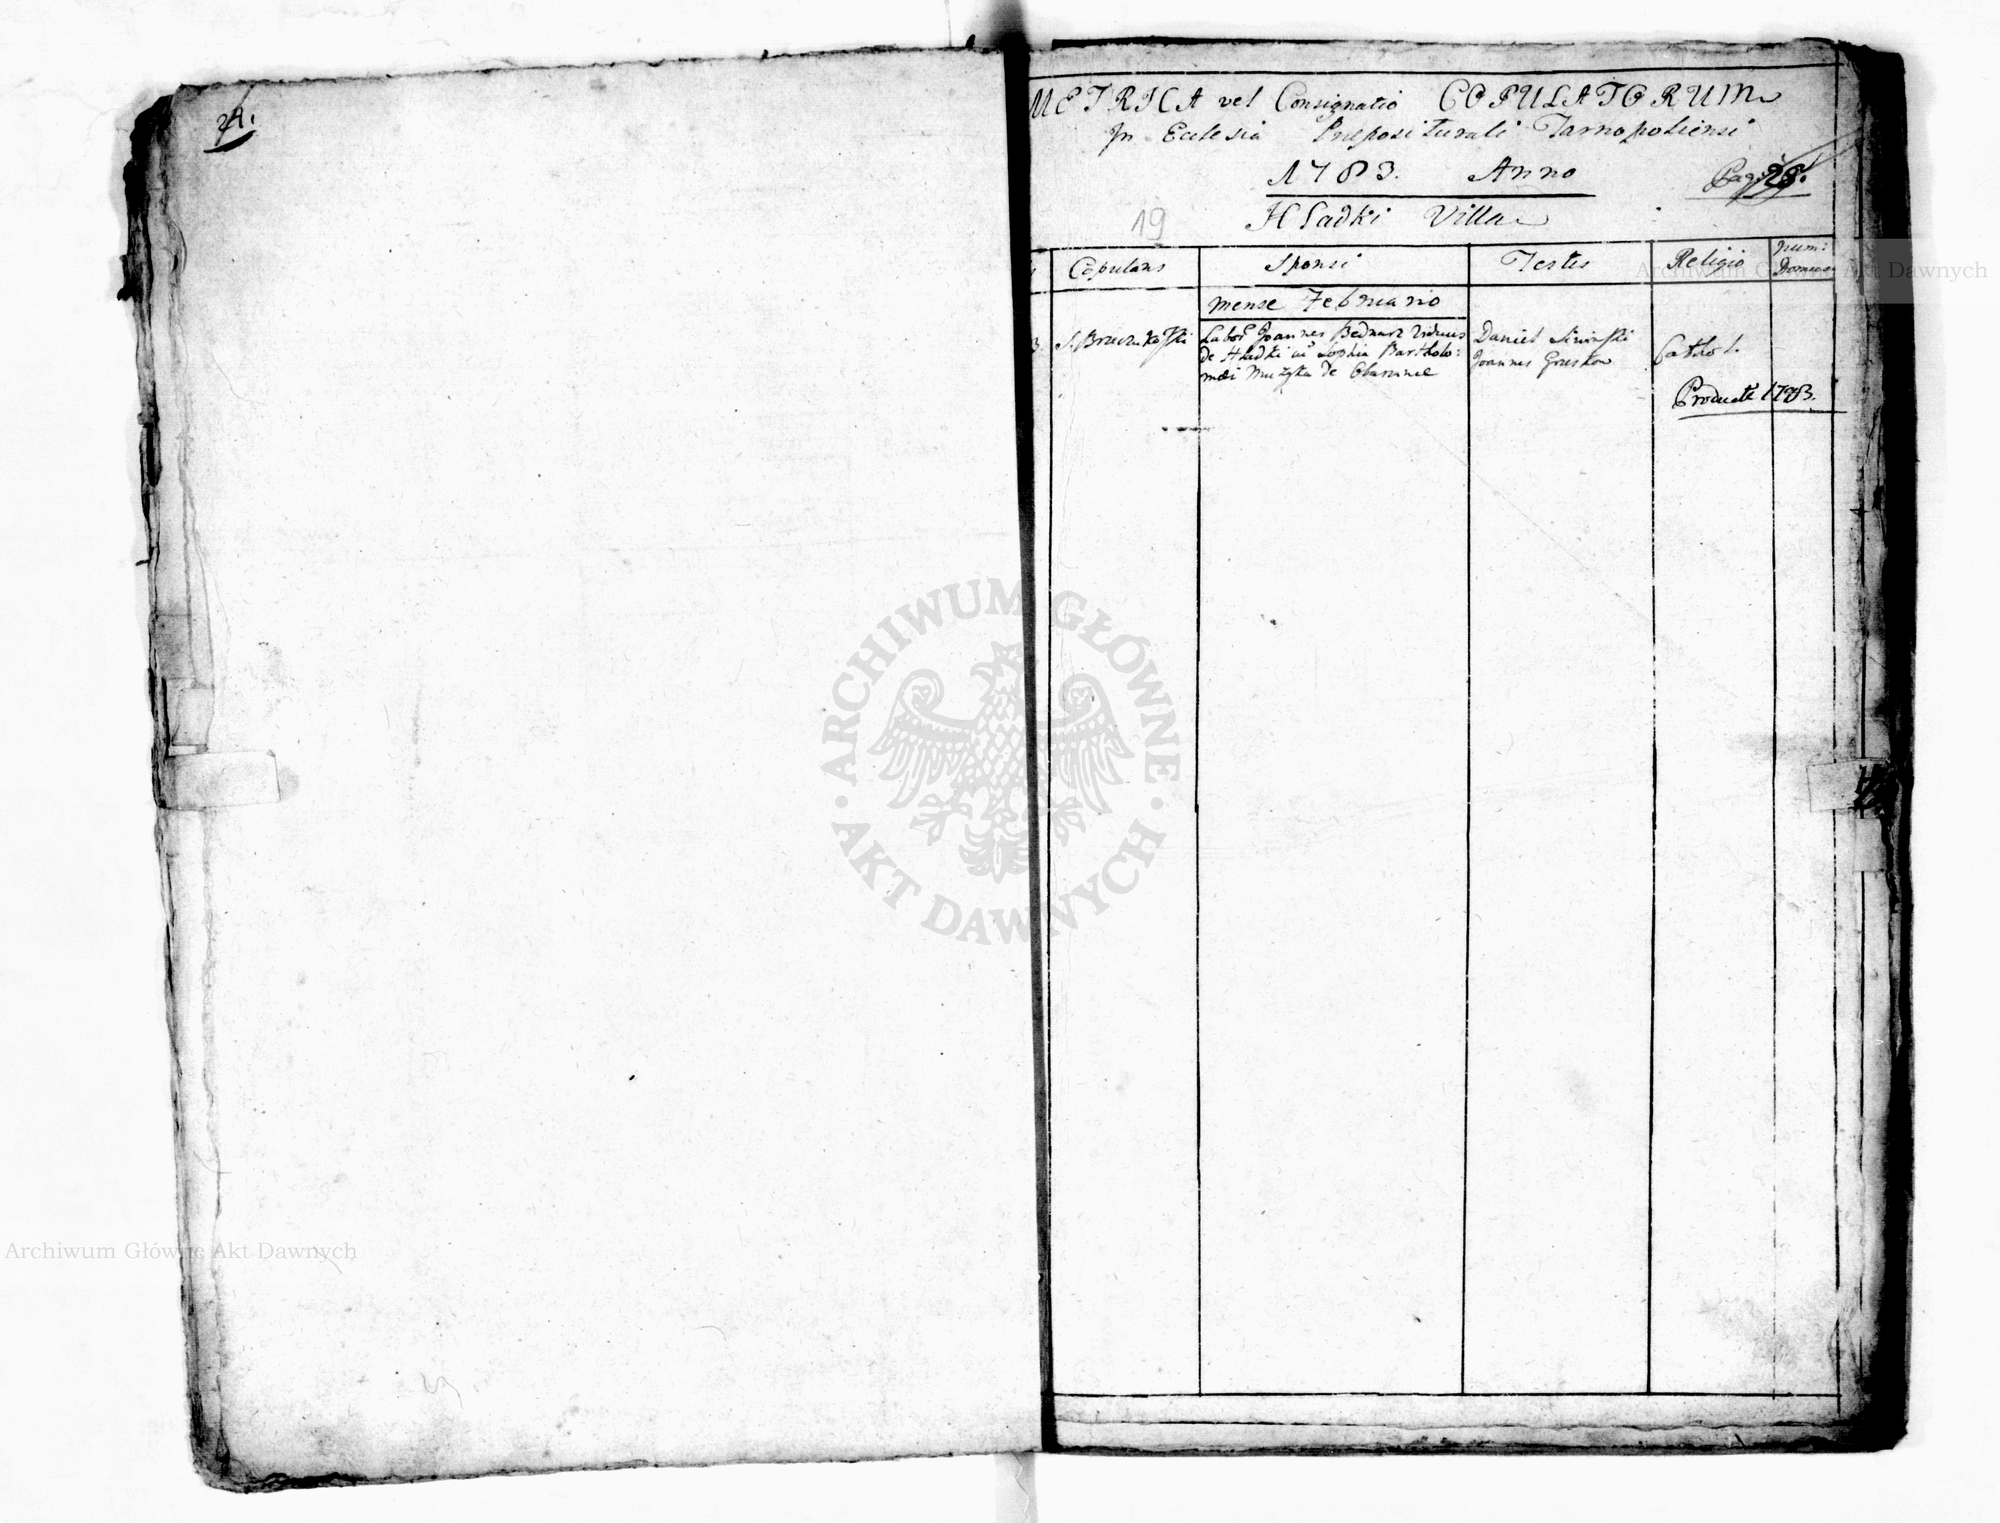 24.
METRICA vel Consignatio COPULATORUM
Jn Ecclesia Praepositurali Tarnopoliensi
1783. Anno
Pag: 28.
19
Hladki Villa
Copulans
Sponsi
Testes
Religio
Num: Domus
mense Februario
Labor Joannes Bednarz Viduus
de Hladki cu Sophia Bartholo:
maei Muzyka de
Daniel
Joannes
Cathol.
Product 1783.
ARCHIWUM GŁÓWNE AKT DAWNYCH
Archiwum Główne Akt Dawnych
Archiwum Główne Akt Dawnych